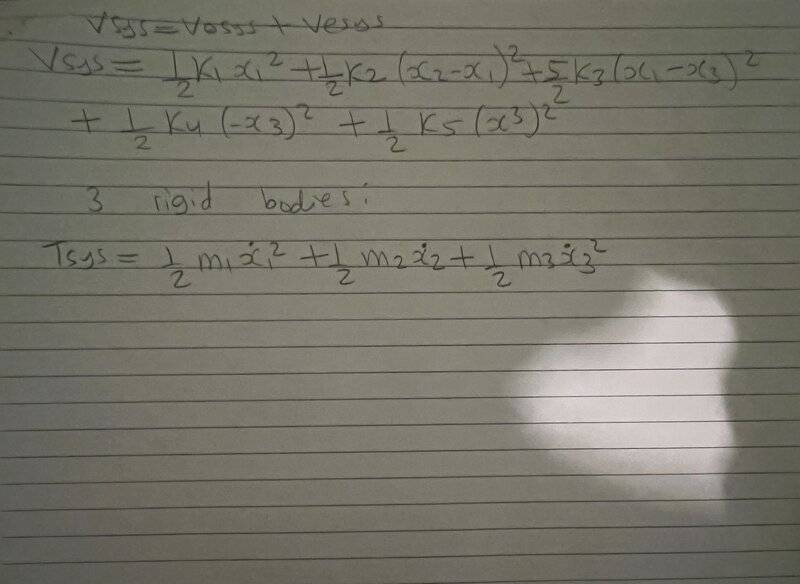 Vsys = Vosss + Vesys
Vsys = 1/2 K1 x1² + 1/2 K2 (x2-x1)² + 5/2 K3 (x1-x3)²
+ 1/2 K4 (-x3)² + 1/2 K5 (x3)²²
3 rigid bodies:
Tsys = 1/2 m1 ẋ1² + 1/2 m2 ẋ2 + 1/2 m3 ẋ3²